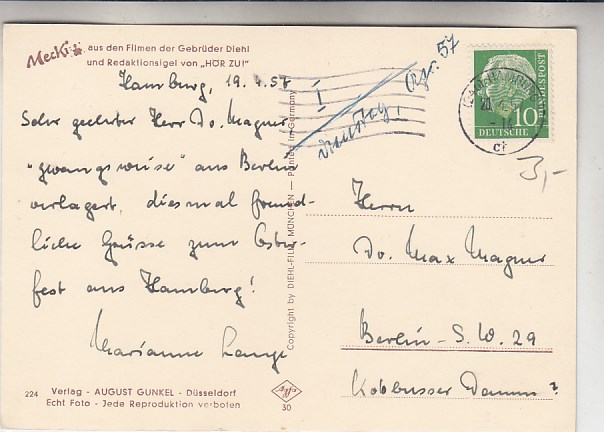 Mecki aus den Filmen der Gebrüder Diehl
und Redaktionsigel von „HÖR ZU!"
Hamburg, 19.4.57
Sehr geehrter Herr Dr. Magner
"zwangsweise" aus Berlin
verlagert, diesmal freund-
liche Grüsse zum Oster-
fest aus Hamburg!
Marianne Lange
224 Verlag - AUGUST GUNKEL - Düsseldorf
Echt Foto - Jede Reproduktion verboten
Copyright by DIEHL-FILM MÜNCHEN — Printed in Germany
30
I
57
DEUTSCHE
BUNDESPOST
10
20
3,-
Herrn
Dr. Max Magner
Berlin - S.W. 29
Kottbusser Damm ?